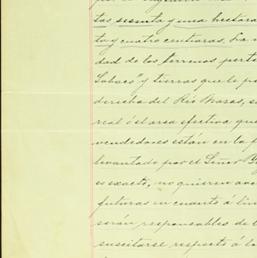 tas sesenta y una hectárea
ta y cuatro centiaras. La
dad de los terrenos perte
Sabaco" y tierras que le po
derecha del Rio Maras, s
real ó el area efectiva que
vendedores están en la p
levantado por el Señor
es exacto, no quieren
futuras en cuanto á lin
serán responsables de l
suscitarse respeto á la